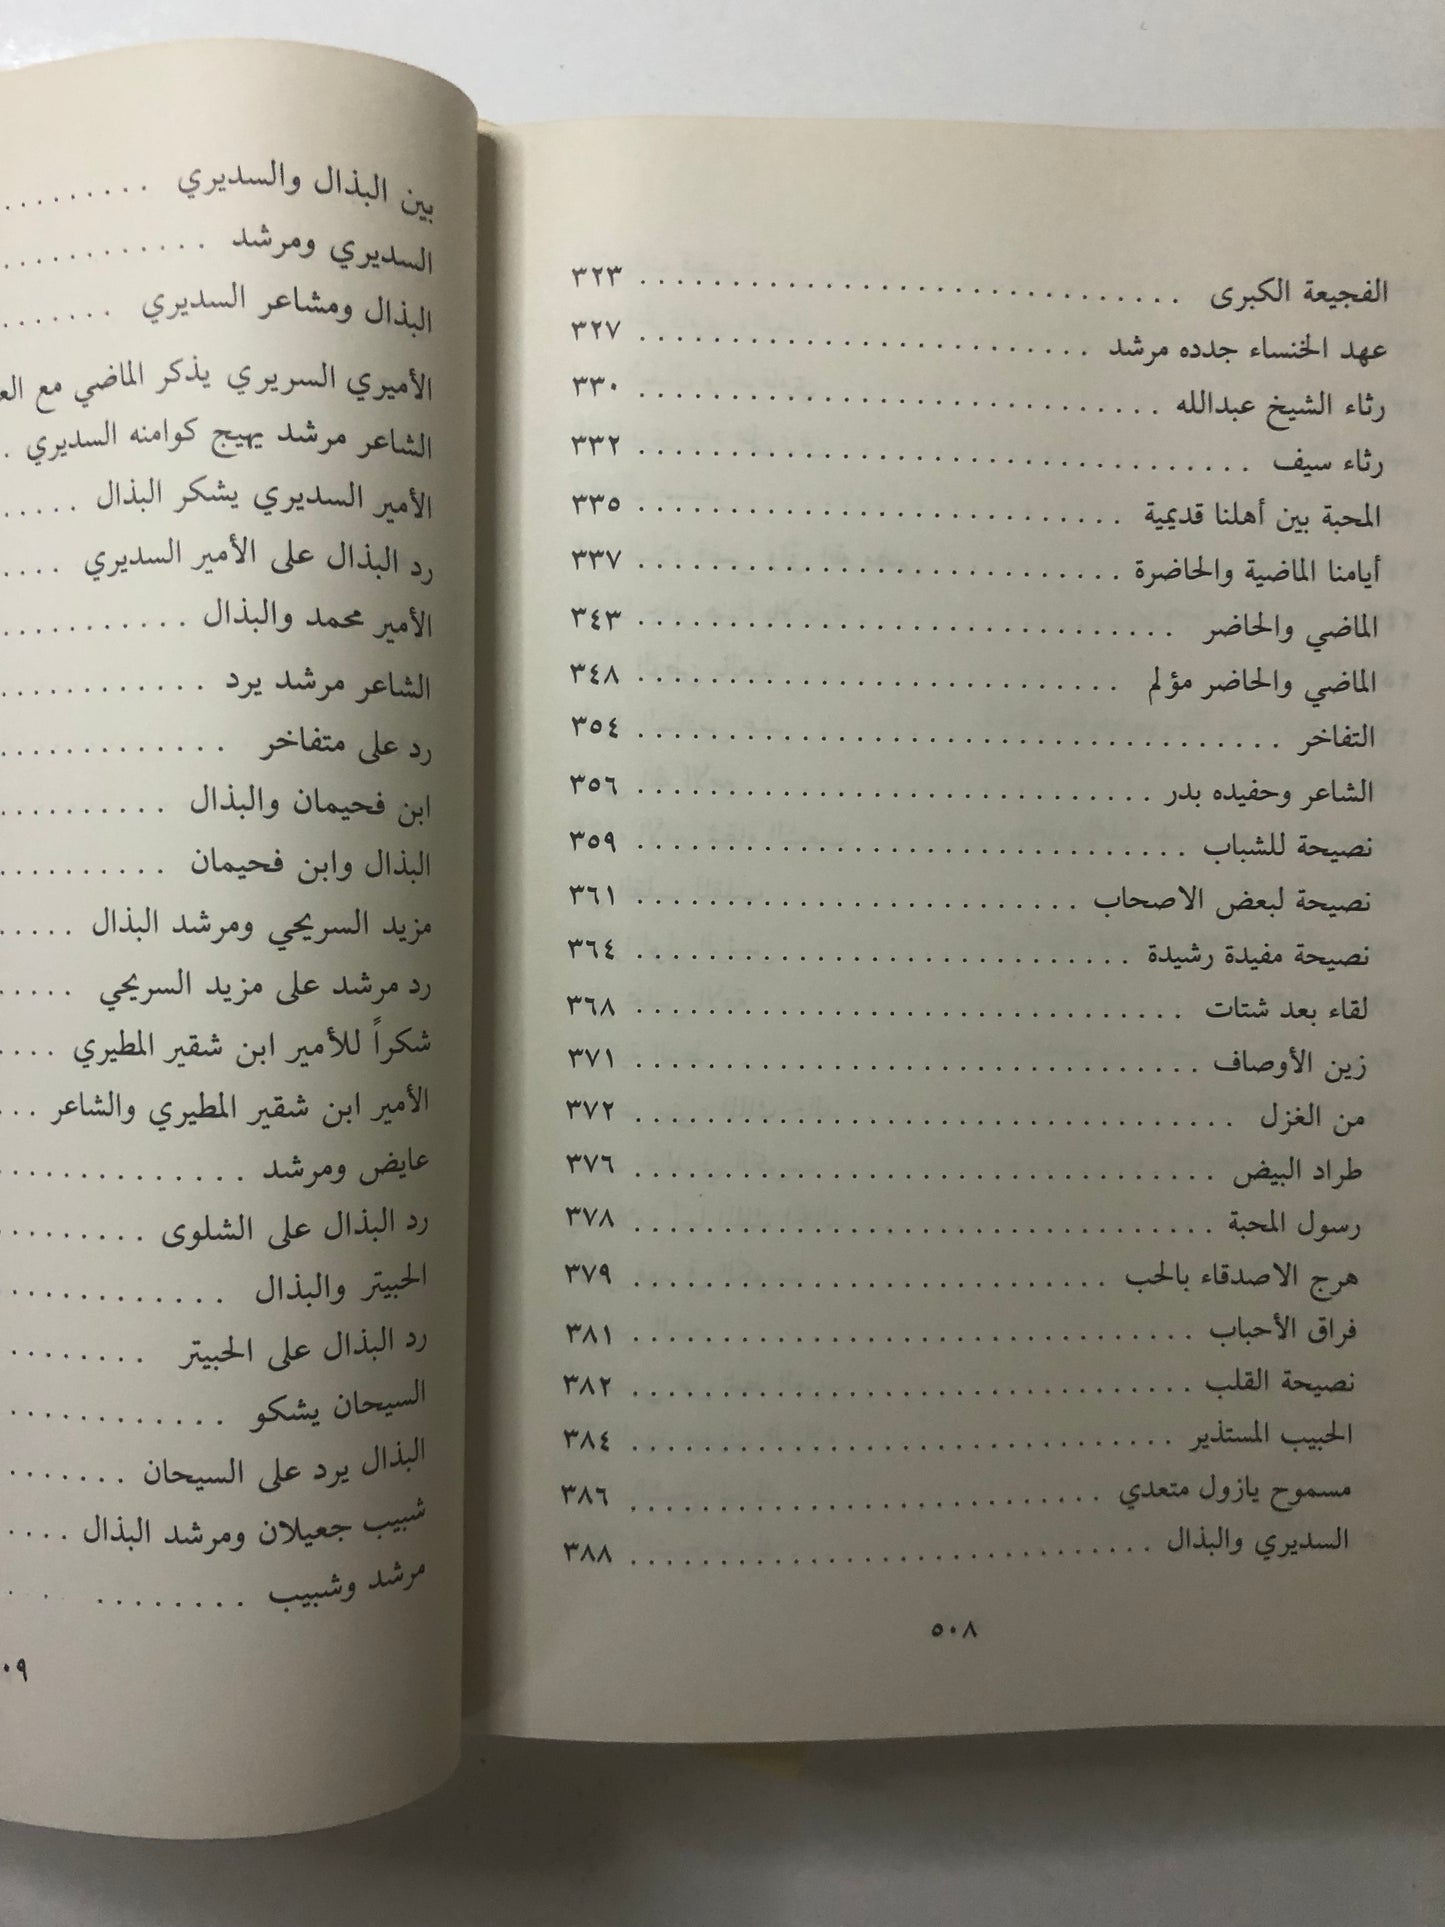 الفجيعة الكبرى ٣٢٣
عهد الخنساء جدده مرشد ٣٢٧
رثاء الشيخ عبدالله ٣٣٠
رثاء سيف ٣٣٢
المحبة بين أهلنا قديمية ٣٣٥
أيامنا الماضية والحاضرة ٣٣٧
الماضي والحاضر ٣٤٣
الماضي والحاضر مؤلم ٣٤٨
التفاخر ٣٥٤
الشاعر وحفيده بدر ٣٥٦
نصيحة للشباب ٣٥٩
نصيحة لبعض الاصحاب ٣٦١
نصيحة مفيدة رشيدة ٣٦٤
لقاء بعد شتات ٣٦٨
زين الأوصاف ٣٧١
من الغزل ٣٧٢
طراد البيض ٣٧٦
رسول المحبة ٣٧٨
هرج الاصدقاء بالحب ٣٧٩
فراق الأحباب ٣٨١
نصيحة القلب ٣٨٢
الحبيب المستذير ٣٨٤
مسموح يازول متعدي ٣٨٦
السديري والبذال ٣٨٨
٥٠٨
بين البذال والسديري
السديري ومرشد
البذال ومشاعر السديري
الأميري السريري يذكر الماضي مع
الشاعر مرشد يهيج كوامنه السديري
الأمير السديري يشكر البذال
رد البذال على الأمير السديري
الأمير محمد والبذال
الشاعر مرشد يرد
رد على متفاخر
ابن فحيمان والبذال
البذال وابن فحيمان
مزيد السريحي ومرشد البذال
رد مرشد على مزيد السريحي
شكراً للأمير ابن شقير المطيري
الأمير ابن شقير المطيري والشاعر
عايض ومرشد
رد البذال على الشلوى
الحبيتر والبذال
رد البذال على الحبيتر
السيحان يشكو
البذال يرد على السيحان
شبيب جعيلان ومرشد البذال
مرشد وشبيب